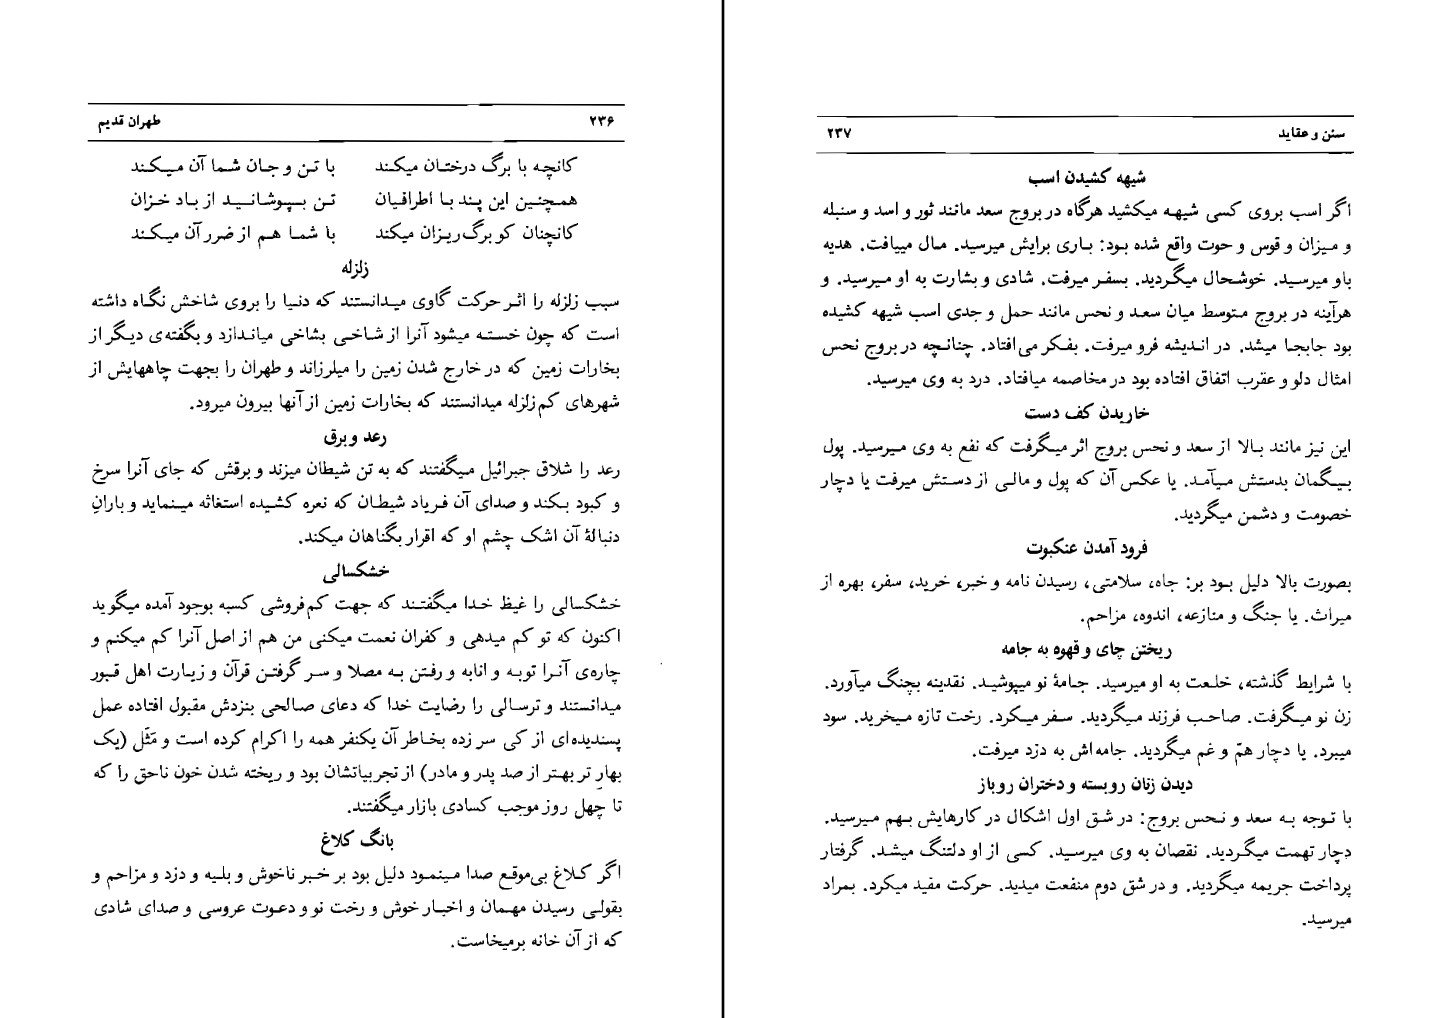 ۲۳۶ طهران قدیم
کانچه با برگ درختان میکند با تن و جان شما آن میکند
همچنین این پند با اطرافیان تن بپوشانید از باد خزان
کانچنان کو برگ ریزان میکند با شما هم از ضرر آن میکند
زلزله
سبب زلزله را اثر حرکت گاوی میدانستند که دنیا را بروی شاخش نگاه داشته
است که چون خسته میشود آنرا از شاخی بشاخی میاندازد و بگفته‌ی دیگر از
بخارات زمین که در خارج شدن زمین را میلرزاند و طهران را بجهت چاههایش از
شهرهای کم زلزله میدانستند که بخارات زمین از آنها بیرون میرود.
رعد و برق
رعد را شلاق جبرائیل میگفتند که به تن شیطان میزند و برقش که جای آنرا سرخ
و کبود بکند و صدای آن فریاد شیطان که نعره کشیده استغاثه مینماید و بارانِ
دنبالهٔ آن اشک چشم او که اقرار بگناهان میکند.
خشکسالی
خشکسالی را غیظ خدا میگفتند که جهت کم‌فروشی کسبه بوجود آمده میگوید
اکنون که تو کم میدهی و کفران نعمت میکنی من هم از اصل آنرا کم میکنم و
چاره‌ی آنرا توبه و انابه و رفتن به مصلا و سر گرفتن قرآن و زیارت اهل قبور
میدانستند و ترسالی را رضایت خدا که دعای صالحی بنزدش مقبول افتاده عمل
پسندیده‌ای از کی سر زده بخاطر آن یکنفر همه را اکرام کرده است و مَثَل (یک
بهارِ تر بهتر از صد پدر و مادر) از تجربیاتشان بود و ریخته شدن خون ناحق را که
تا چهل روز موجب کسادی بازار میگفتند.
بانگ کلاغ
اگر کلاغ بی‌موقع صدا مینمود دلیل بود بر خبر ناخوش و بلیه و دزد و مزاحم و
بقولی رسیدن مهمان و اخبار خوش و رخت نو و دعوت عروسی و صدای شادی
که از آن خانه برمیخاست.
سنن و عقاید ۲۳۷
شیهه کشیدن اسب
اگر اسب بروی کسی شیهه میکشید هرگاه در بروج سعد مانند ثور و اسد و سنبله
و میزان و قوس و حوت واقع شده بود: باری برایش میرسید. مال مییافت. هدیه
باو میرسید. خوشحال میگردید. بسفر میرفت. شادی و بشارت به او میرسید. و
هرآینه در بروج متوسط میان سعد و نحس مانند حمل و جدی اسب شیهه کشیده
بود جابجا میشد. در اندیشه فرو میرفت. بفکر می‌افتاد. چنانچه در بروج نحس
امثال دلو و عقرب اتفاق افتاده بود در مخاصمه میافتاد. درد به وی میرسید.
خاریدن کف دست
این نیز مانند بالا از سعد و نحس بروج اثر میگرفت که نفع به وی میرسید. پول
بیگمان بدستش میآمد. یا عکس آن که پول و مالی از دستش میرفت یا دچار
خصومت و دشمن میگردید.
فرود آمدن عنکبوت
بصورت بالا دلیل بود بر: جاه، سلامتی، رسیدن نامه و خبر، خرید، سفر، بهره از
میراث. یا جنگ و منازعه، اندوه، مزاحم.
ریختن چای و قهوه به جامه
با شرایط گذشته، خلعت به او میرسید. جامهٔ نو میپوشید. نقدینه بچنگ میآورد.
زن نو میگرفت. صاحب فرزند میگردید. سفر میکرد. رخت تازه میخرید. سود
میبرد. یا دچار همّ و غم میگردید. جامه‌اش به دزد میرفت.
دیدن زنان روبسته و دختران روباز
با توجه به سعد و نحس بروج: در شق اول اشکال در کارهایش بهم میرسید.
دچار تهمت میگردید. نقصان به وی میرسید. کسی از او دلتنگ میشد. گرفتار
پرداخت جریمه میگردید. و در شق دوم منفعت میدید. حرکت مفید میکرد. بمراد
میرسید.